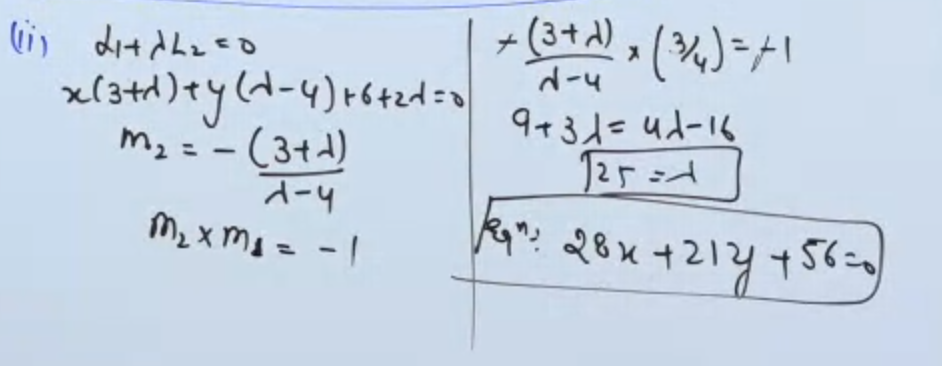 (ii) L1+λL2=0
x(3+λ)+y(λ-4)+6+2λ=0
m2 = -(3+λ)/λ-4
m2 × m1 = -1
+(3+λ)/λ-4 × (3/4) = +1
9+3λ = 4λ-16
25 = λ
Eqn: 28x+21y+56=0